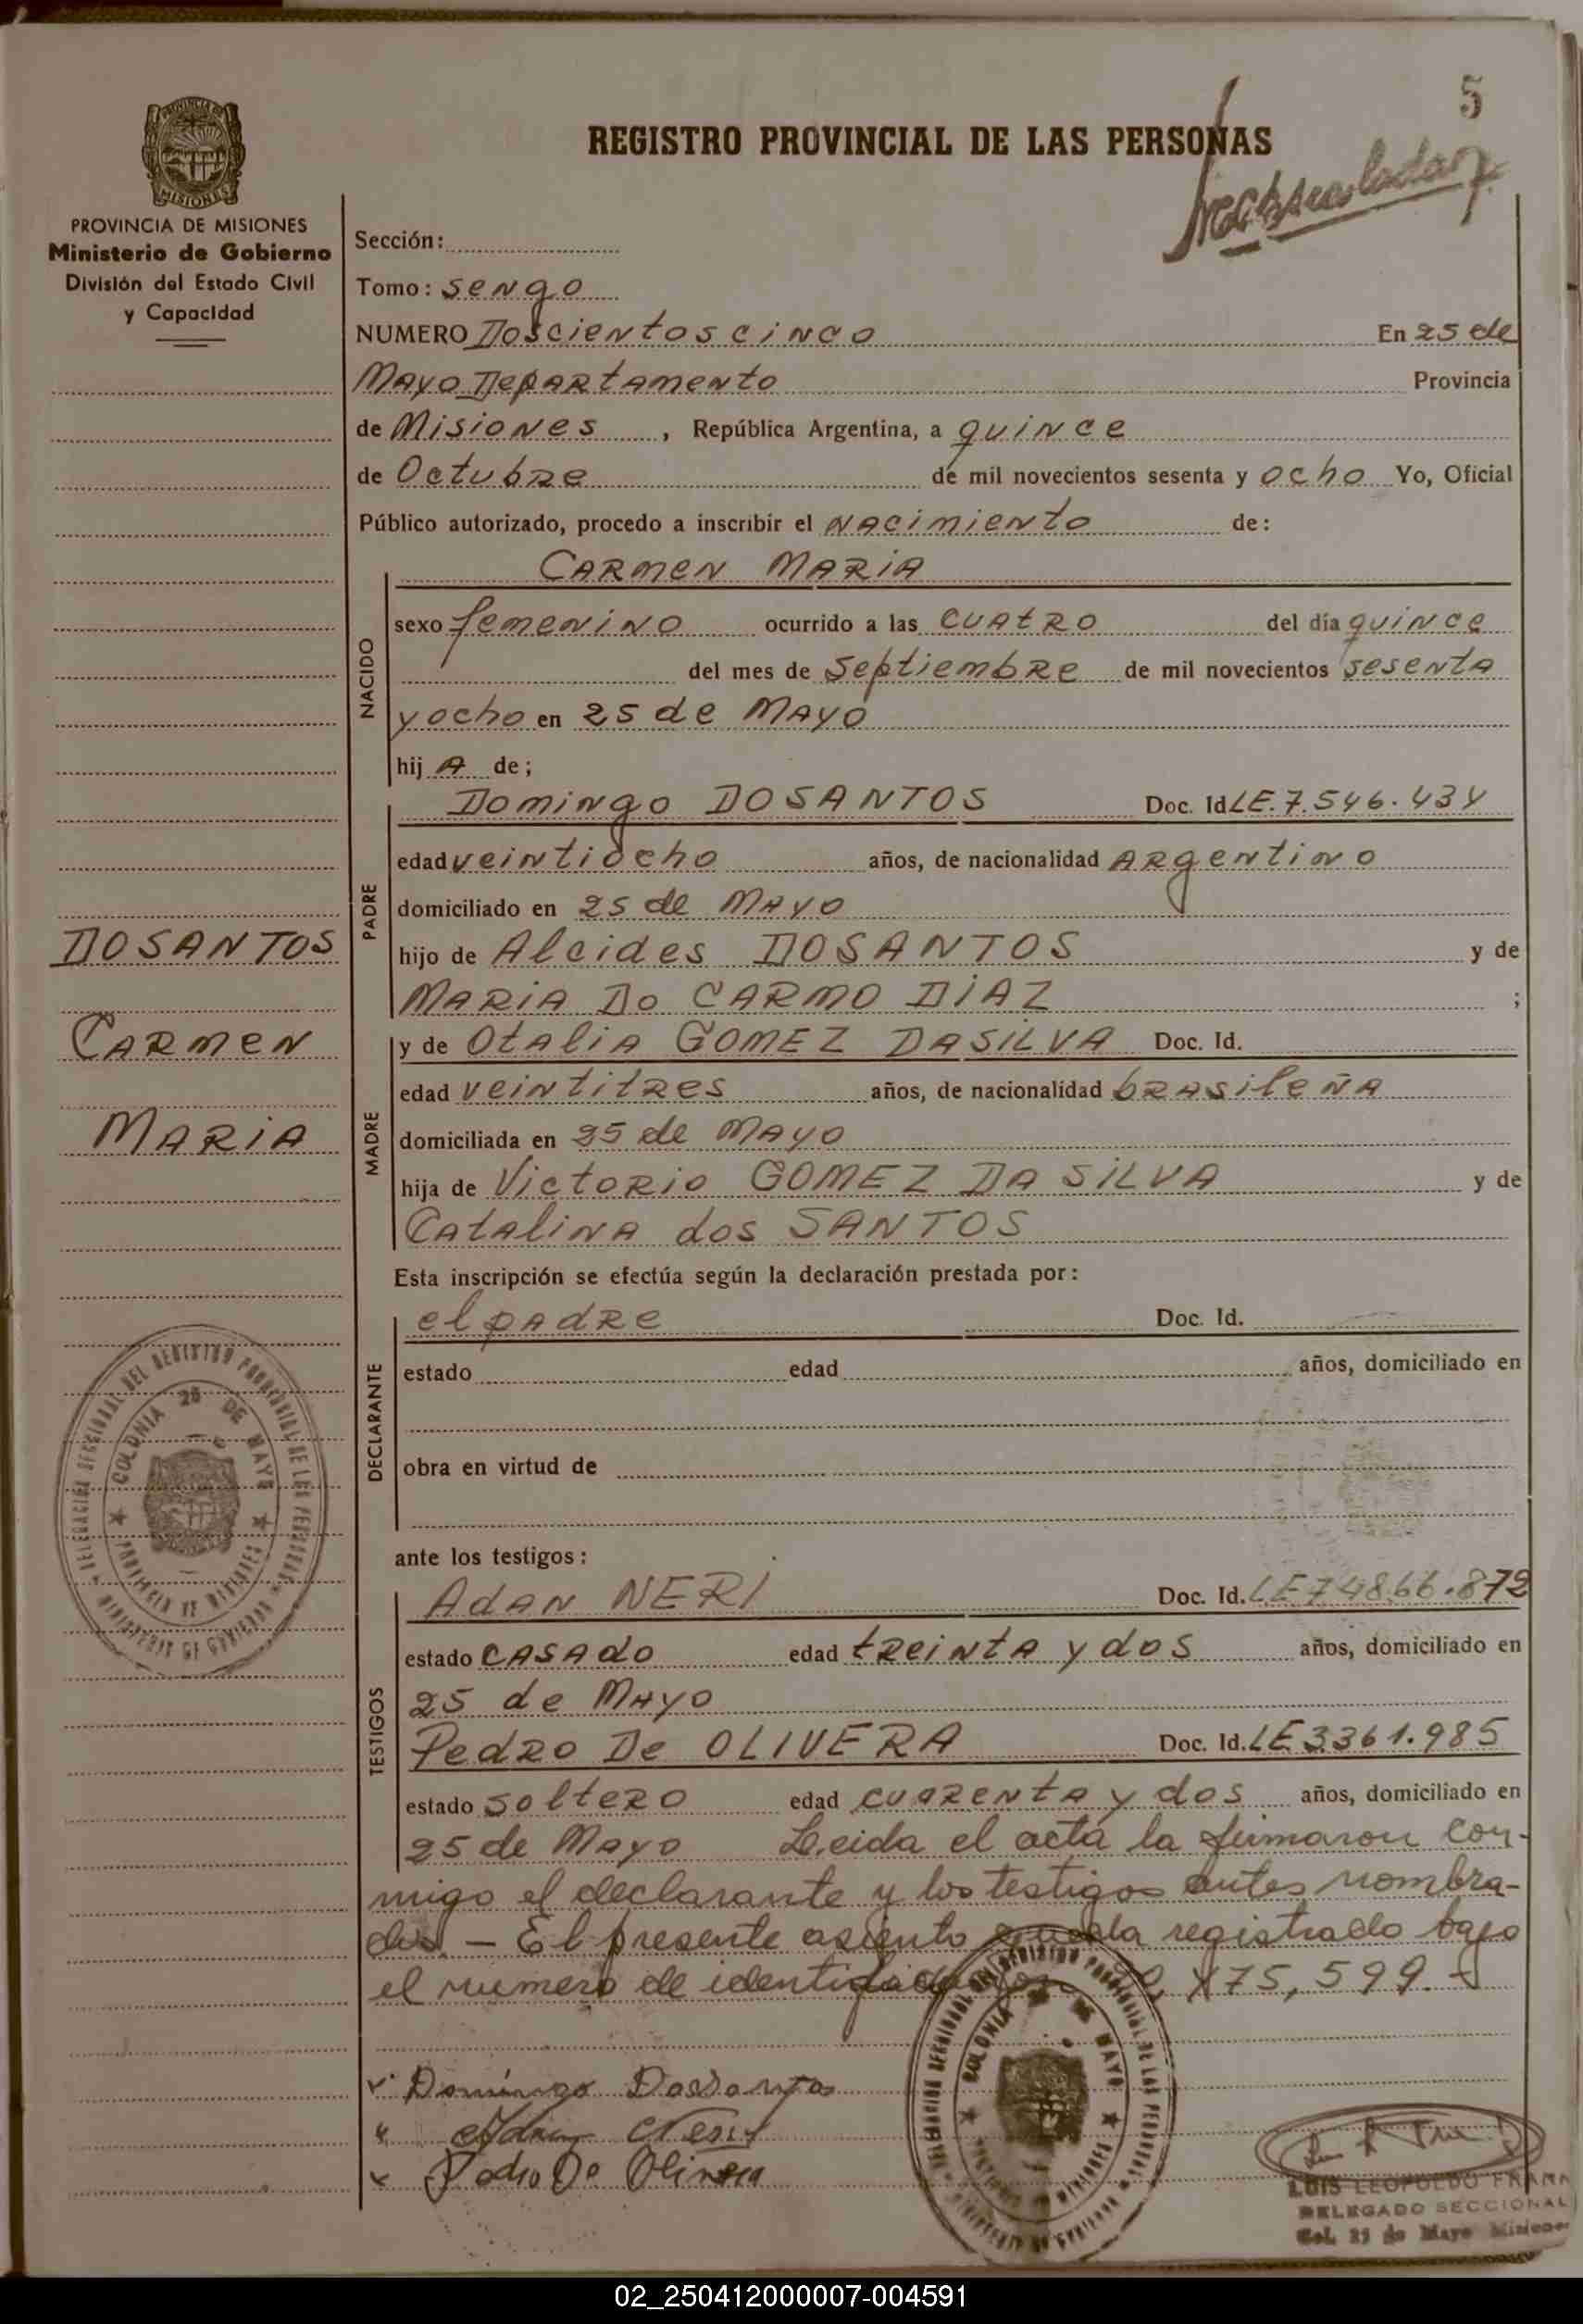 5
REGISTRO PROVINCIAL DE LAS PERSONAS
PROVINCIA DE MISIONES
Ministerio de Gobierno
División del Estado Civil
y Capacidad
Sección:
Tomo: Sengo
NUMERO Doscientos cinco En 25 de
Mayo Departamento Provincia
de Misiones, República Argentina, a quince
de Octubre de mil novecientos sesenta y ocho Yo, Oficial
Público autorizado, procedo a inscribir el nacimiento de:
CARMEN MARIA
NACIDO
sexo femenino ocurrido a las cuatro del día quince
del mes de Septiembre de mil novecientos sesenta
y ocho en 25 de Mayo
hij A de;
PADRE
Domingo DOSANTOS Doc. Id LE. 7.546.434
edad veintiocho años, de nacionalidad Argentino
domiciliado en 25 de Mayo
hijo de Alcides DOSANTOS y de
MARIA Do CARMO DIAZ ;
MADRE
y de Otalia GOMEZ DASILVA Doc. Id.
edad veintitres años, de nacionalidad brasileña
domiciliada en 25 de Mayo
hija de Victorio GOMEZ DA SILVA y de
Catalina dos SANTOS
DOSANTOS
CARMEN
MARIA
Esta inscripción se efectúa según la declaración prestada por:
DECLARANTE
el padre Doc. Id.
estado edad años, domiciliado en
obra en virtud de
DELEGACION SECCIONAL DEL REGISTRO PROVINCIAL DE LAS PERSONAS
MINISTERIO DE GOBIERNO
COLONIA 25 DE MAYO
PROVINCIA DE MISIONES
ante los testigos:
TESTIGOS
Adan NERI Doc. Id. LE 74866.872
estado casado edad treinta y dos años, domiciliado en
25 de Mayo
Pedro De OLIVERA Doc. Id. LE 3361.985
estado soltero edad cuarenta y dos años, domiciliado en
25 de Mayo Leida el acta la firmaron con-
migo el declarante y los testigos antes nombra-
dos. — El presente asiento queda registrado bajo
el numero de 75,599.-
Domingo Dossantos
Neri
Pedro De Olivera
LUIS LEOPOLDO
DELEGADO SECCIONAL
Col. 25 de Mayo Misiones
02_250412000007-004591